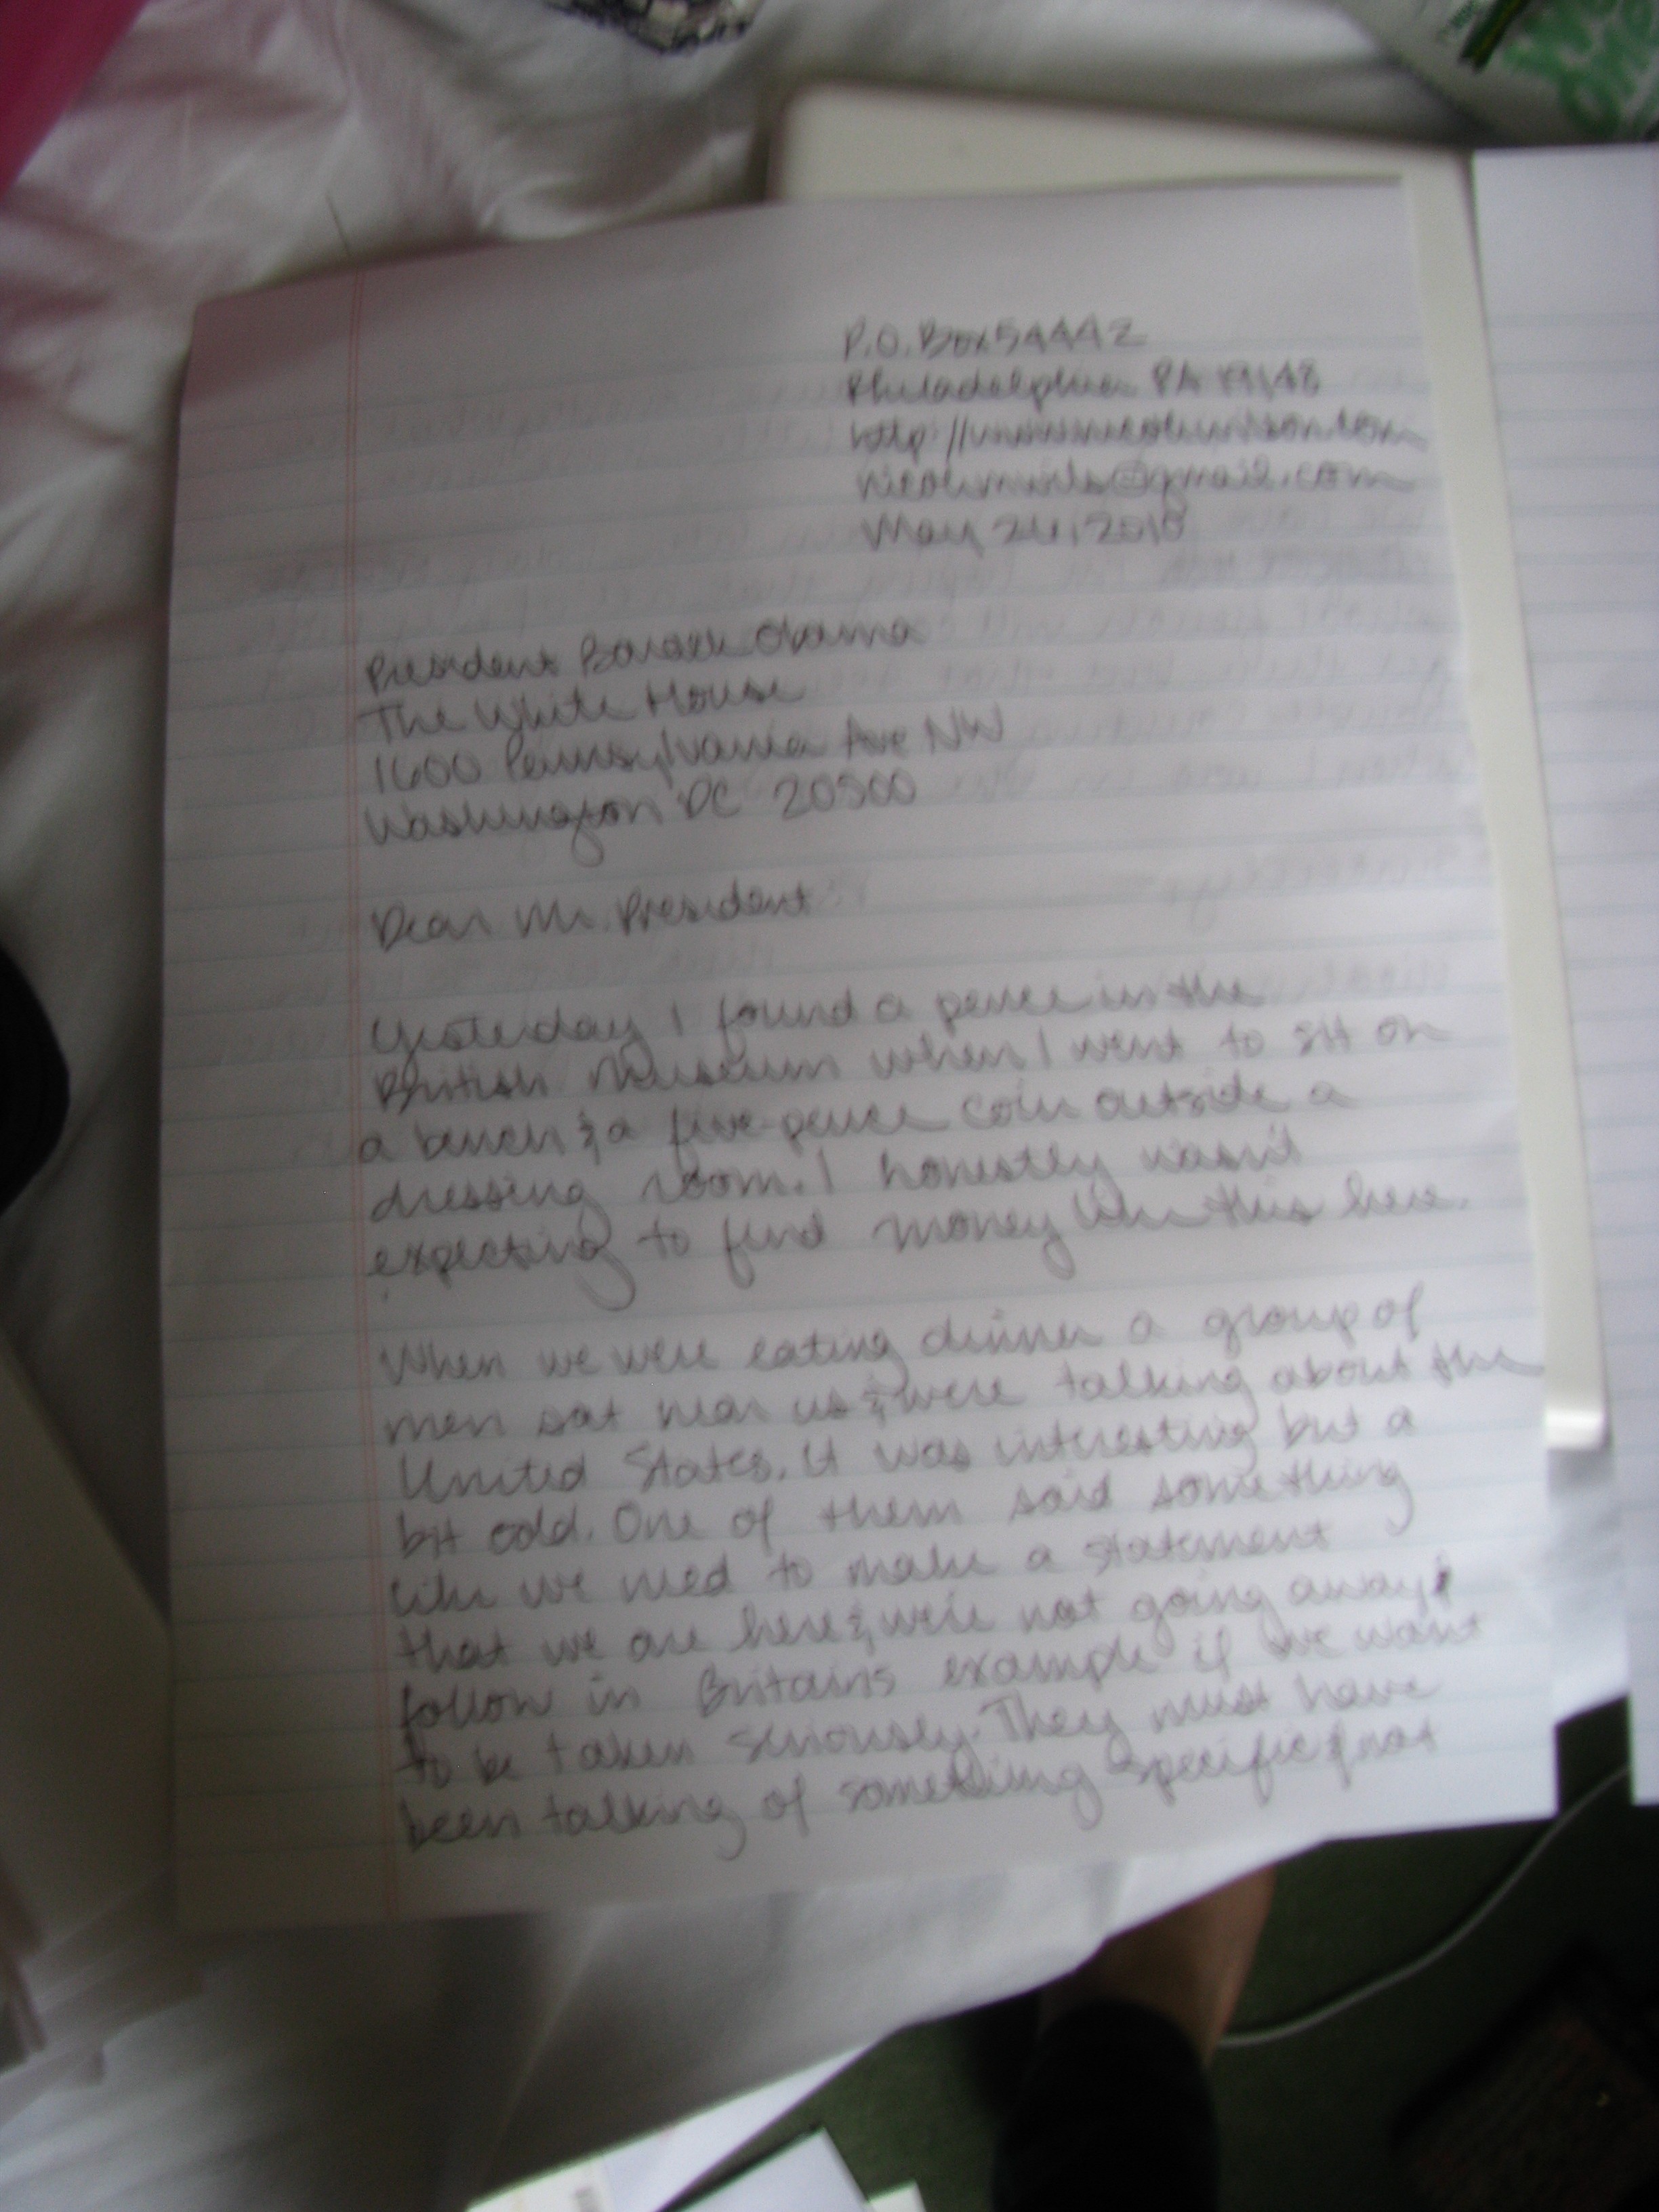 P.O. Box 54442
Philadelphia PA 19148
May 24, 2010
President Barack Obama
The White House
1600 Pennsylvania Ave NW
Washington DC 20500
Dear Mr. President
Yesterday I found a pence in the
British Museum when I went to sit on
a bench & a five-pence coin outside a
dressing room. I honestly wasn't
expecting to find money like this here.
When we were eating dinner a group of
men sat near us & were talking about the
United States. It was interesting but a
bit odd. One of them said something
like we need to make a statement
that we are here & we're not going away &
follow in Britains example if we want
to be taken seriously. They must have
been talking of something specific & not